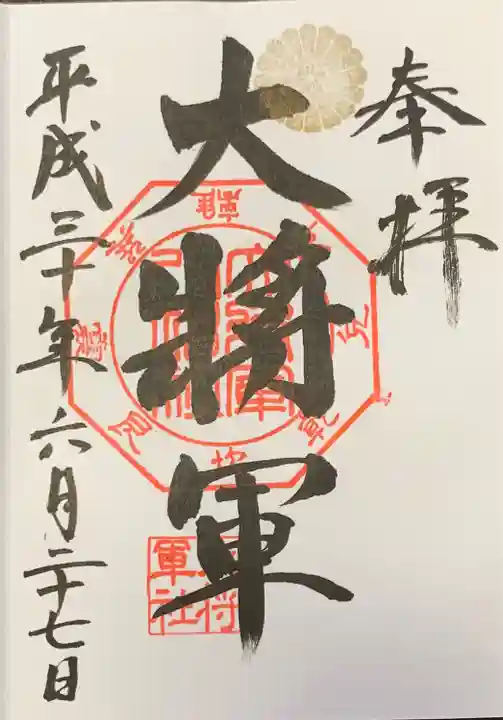 奉拝
大将軍
大将軍社
平成三十年六月二十七日